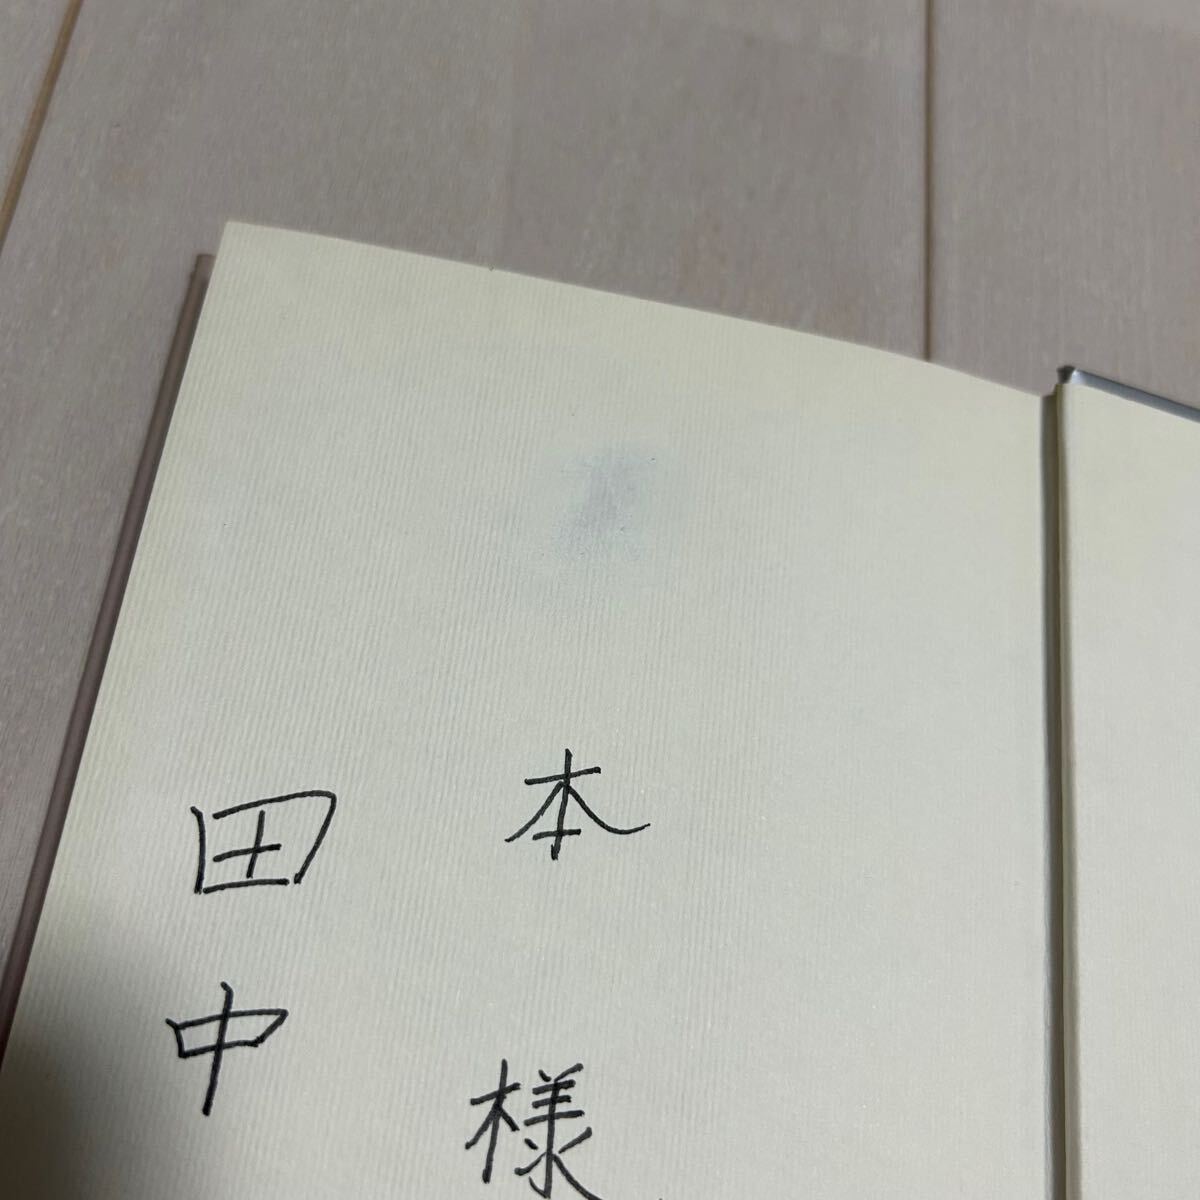 本様
田中